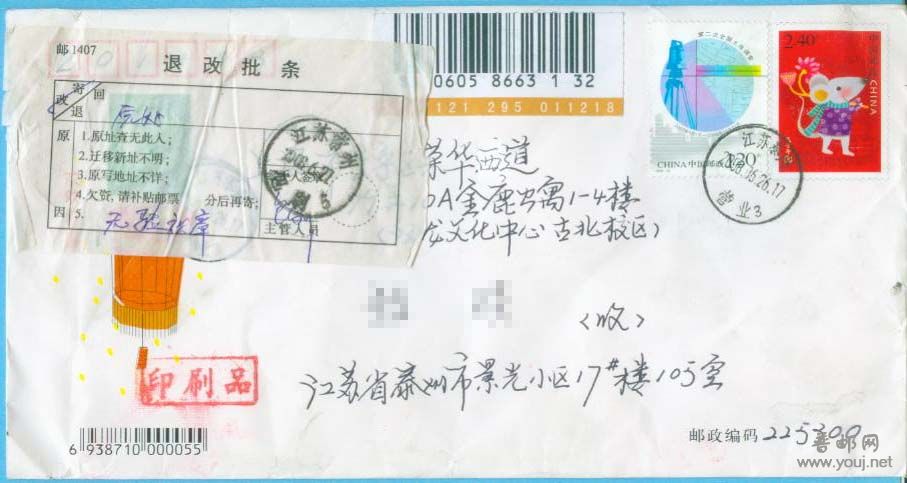 邮1407
退改批条
寄 回
改 退
原因
1.原址查无此人;
2.迁移新址不明;
3.原写地址不详;
4.欠资,请补贴邮票 分后再寄;
5.
主管人员
0605 8663 1 32
121 295 011218
第二次全国土地调查
CHINA中国邮政
1.20
2.40
中国邮政
CHINA
江苏泰州
2008.6.27
江苏泰
2008.6.26.17
营业3
荣华西道
0A金鹿公寓1-4楼
龙文化中心古北校区
(收)
江苏省泰州市景光小区17#楼105室
印刷品
6 938710 000055
邮政编码 225300
普邮网
www.youj.net